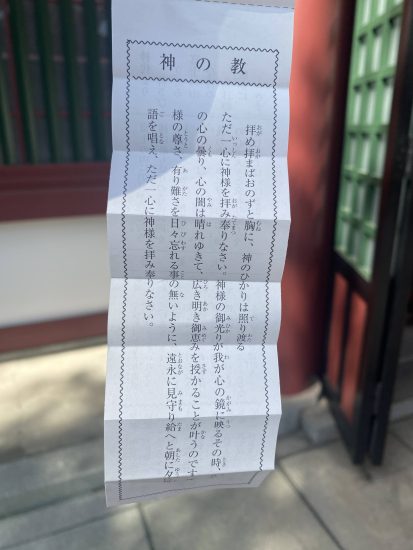 神の教
拝め拝まばおのずと胸に、神のひかりは照り渡る
ただ一心に神様を拝み奉りなさい。神様の御光りが我が心の鏡に映るその時、
の心の曇り、心の闇は晴れゆきて、広き明き御恵みを授かることが叶うのです。
様の尊さ、有り難さを日々忘れる事の無いように、遠永に見守り給へと朝に夕に
語を唱え、ただ一心に神様を拝み奉りなさい。